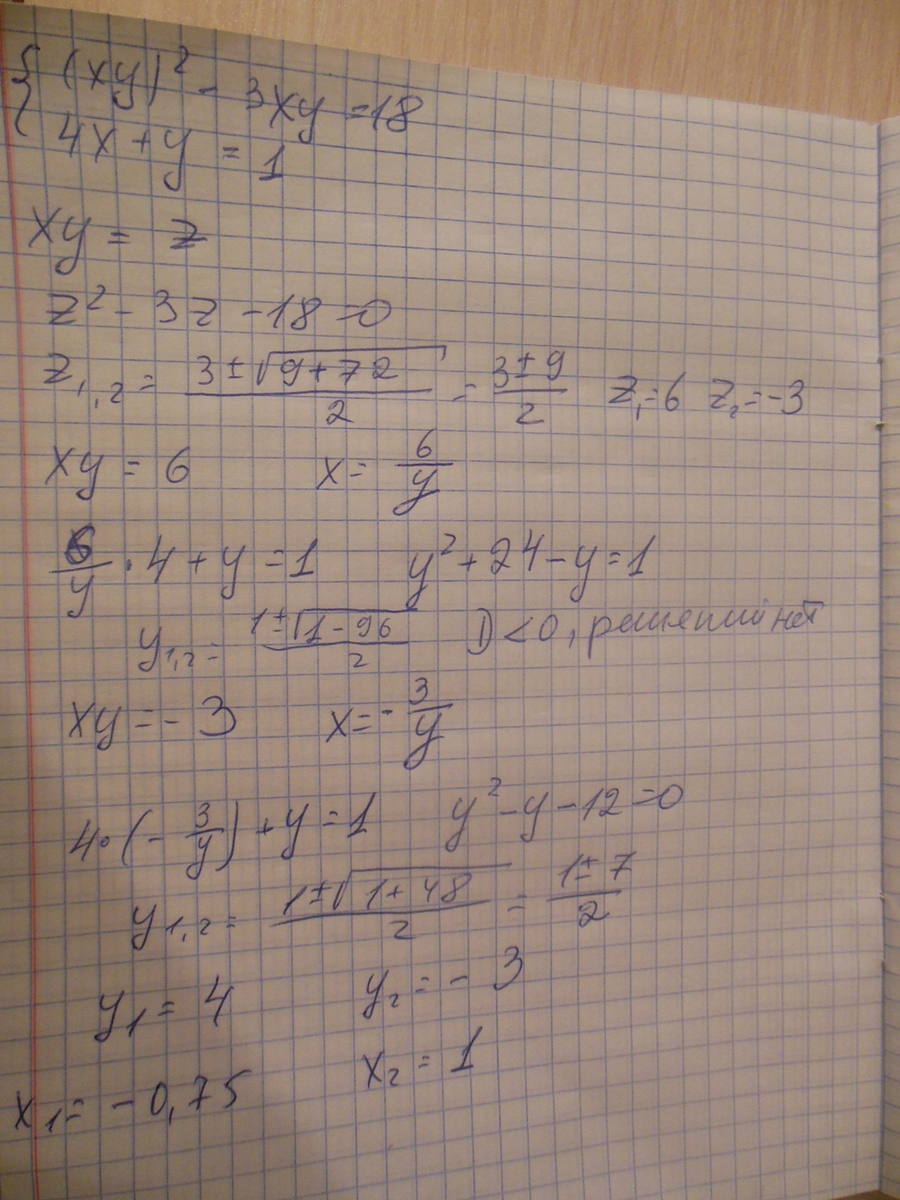 { (xy)² - 3xy = 18
4x + y = 1
xy = z
z² - 3z - 18 = 0
z₁,₂ = (3 ± √(9 + 72)) / 2 = (3 ± 9) / 2 z₁ = 6 z₂ = -3
xy = 6 x = 6/y
6/y · 4 + y = 1 y² + 24 - y = 1
y₁,₂ = (1 ± √(1 - 96)) / 2 D < 0, решений нет
xy = -3 x = -3/y
4 · (-3/y) + y = 1 y² - y - 12 = 0
y₁,₂ = (1 ± √(1 + 48)) / 2 = (1 ± 7) / 2
y₁ = 4 y₂ = -3
x₁ = -0,75 x₂ = 1